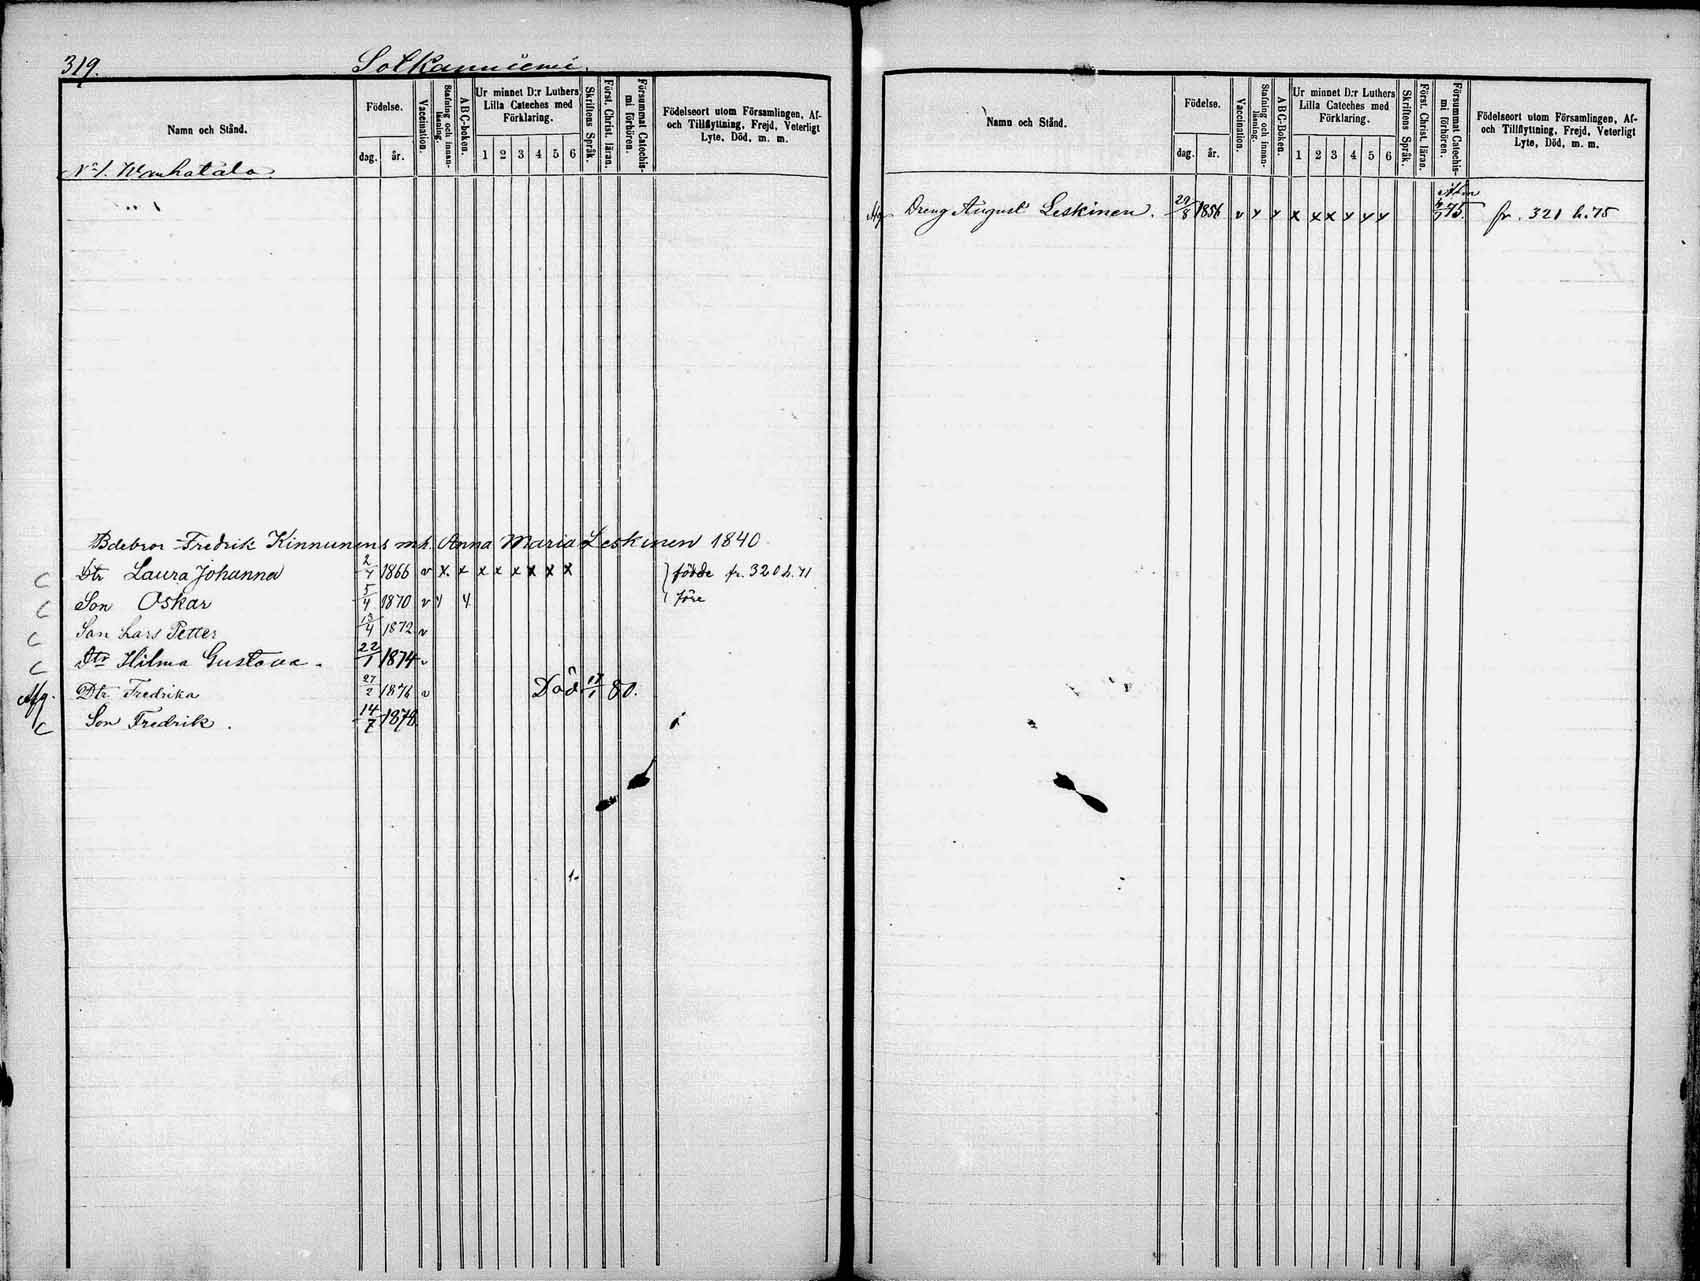 319. Solkanniemi.
Namn och Stånd.
Födelse.
dag. år.
Vaccination.
Stafning och innanläsning.
ABC-boken.
Ur minnet D:r Luthers Lilla Cateches med Förklaring.
1 2 3 4 5 6
Skriftens Språk.
Först. Christ. läran.
Försummat Catechismi förhören.
Födelseort utom Församlingen, Af- och Tillflyttning, Frejd, Veterligt Lyte, Död, m. m.
No 1.
Bdebror Fredrik Kinnunens m.h. Anna Maria Leskinen 1840
Dtr Laura Johanna 2/4 1866 v x x x x x x x x födde fr. 320 h. 71
Son Oskar 5/4 1870 v före
Son Lars Petter 13/4 1872 v
Dtr Hilma Gustava. 22/1 1874 v
Afg. Dtr Fredrika 27/2 1876 v Död 17/1 80.
Son Fredrik. 14/7 1878
Namn och Stånd.
Födelse.
dag. år.
Vaccination.
Stafning och innanläsning.
ABC-Boken.
Ur minnet D:r Luthers Lilla Cateches med Förklaring.
1 2 3 4 5 6
Skriftens Språk.
Först. Christ. läran.
Försummat Catechismi förhören.
Födelseort utom Församlingen, Af- och Tillflyttning, Frejd, Veterligt Lyte, Död, m. m.
Afg. Dreng August Leskinen. 29/8 1856 v x x x x x x x x 75 fr. 321 h. 75